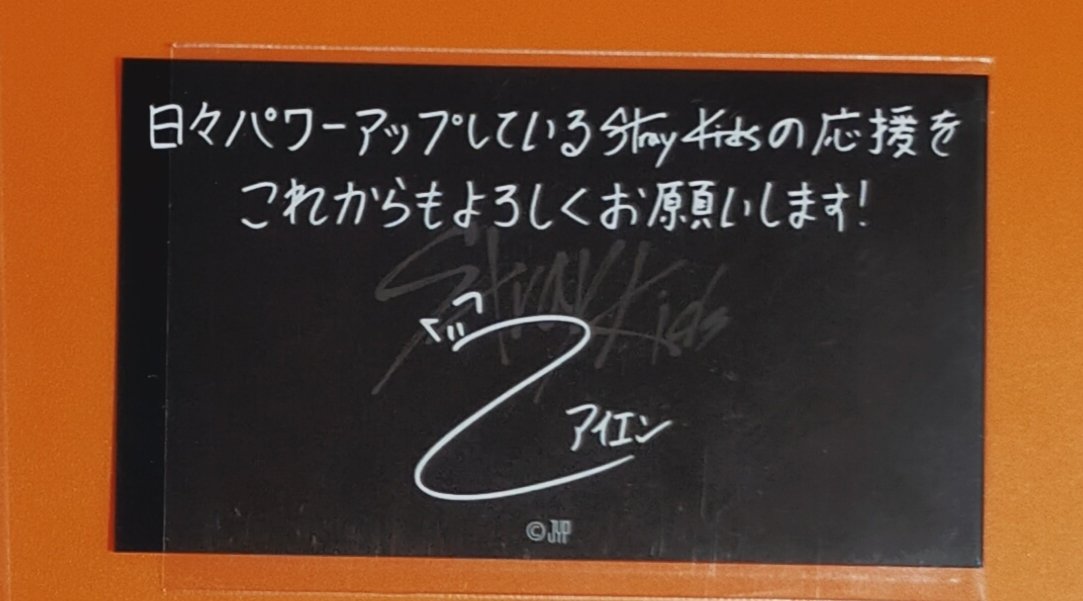 日々パワーアップしているStray Kidsの応援を
これからもよろしくお願いします!
Stray Kids
アイエン
©JYP